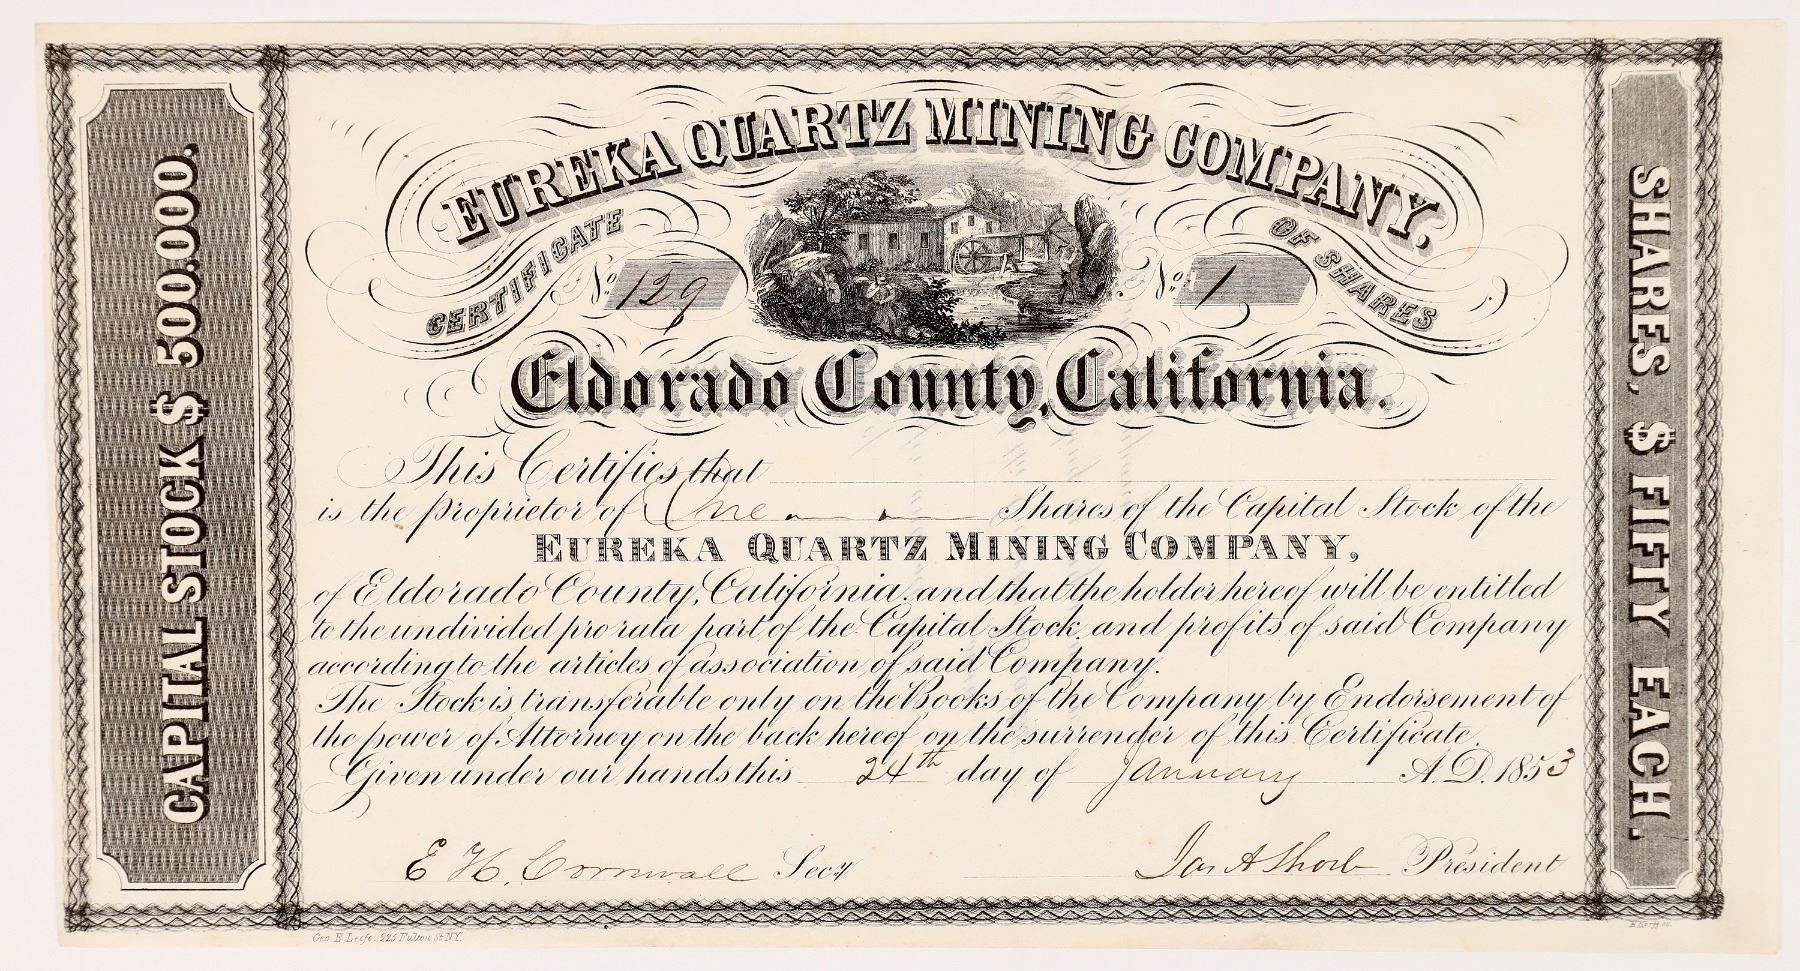 EUREKA QUARTZ MINING COMPANY.
CERTIFICATE OF SHARES
No. 129
No. 1
Eldorado County, California.
CAPITAL STOCK $ 500.000.
SHARES, $ FIFTY EACH.
This Certifies that
is the proprietor of One Shares of the Capital Stock of the
EUREKA QUARTZ MINING COMPANY,
of Eldorado County, California. and that the holder hereof will be entitled
to the undivided pro rata part of the Capital Stock, and profits of said Company
according to the articles of association of said Company.
The Stock is transferable only on the Books of the Company by Endorsement of
the power of Attorney on the back hereof on the surrender of this Certificate.
Given under our hands this 24th day of January A.D. 1853
E H. Cornwall Secy
Jas A Shorb President
Geo. E. Leefe. 225 Fulton St NY.